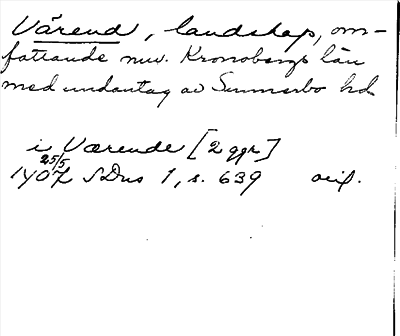 Värend, landskap, om-
fattande nuv. Kronobergs län
med undantag av Sunnerbo hd
i Værende [2 ggr]
25/5
1407 SDns 1, s. 639 avs.